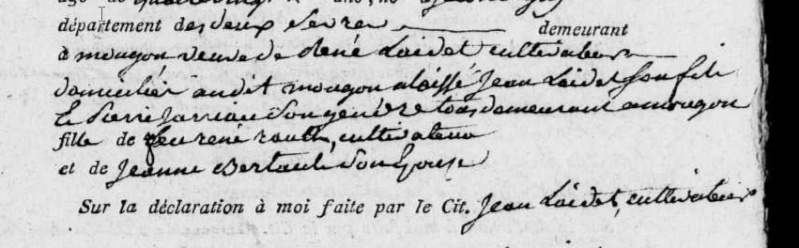 département des deux Sevres demeurant
à mougon veuve de René Laidet cultivateur
domicilier audit mougon a laissé Jean Laidet son fils
Et Pierre Jarriau Son gendre tous demeurant a mougon
fille de feu rené rault, cultivateur
et de Jeanne Bertault Son Epouse
Sur la déclaration à moi faite par le Cit. Jean Laidet, cultivateur